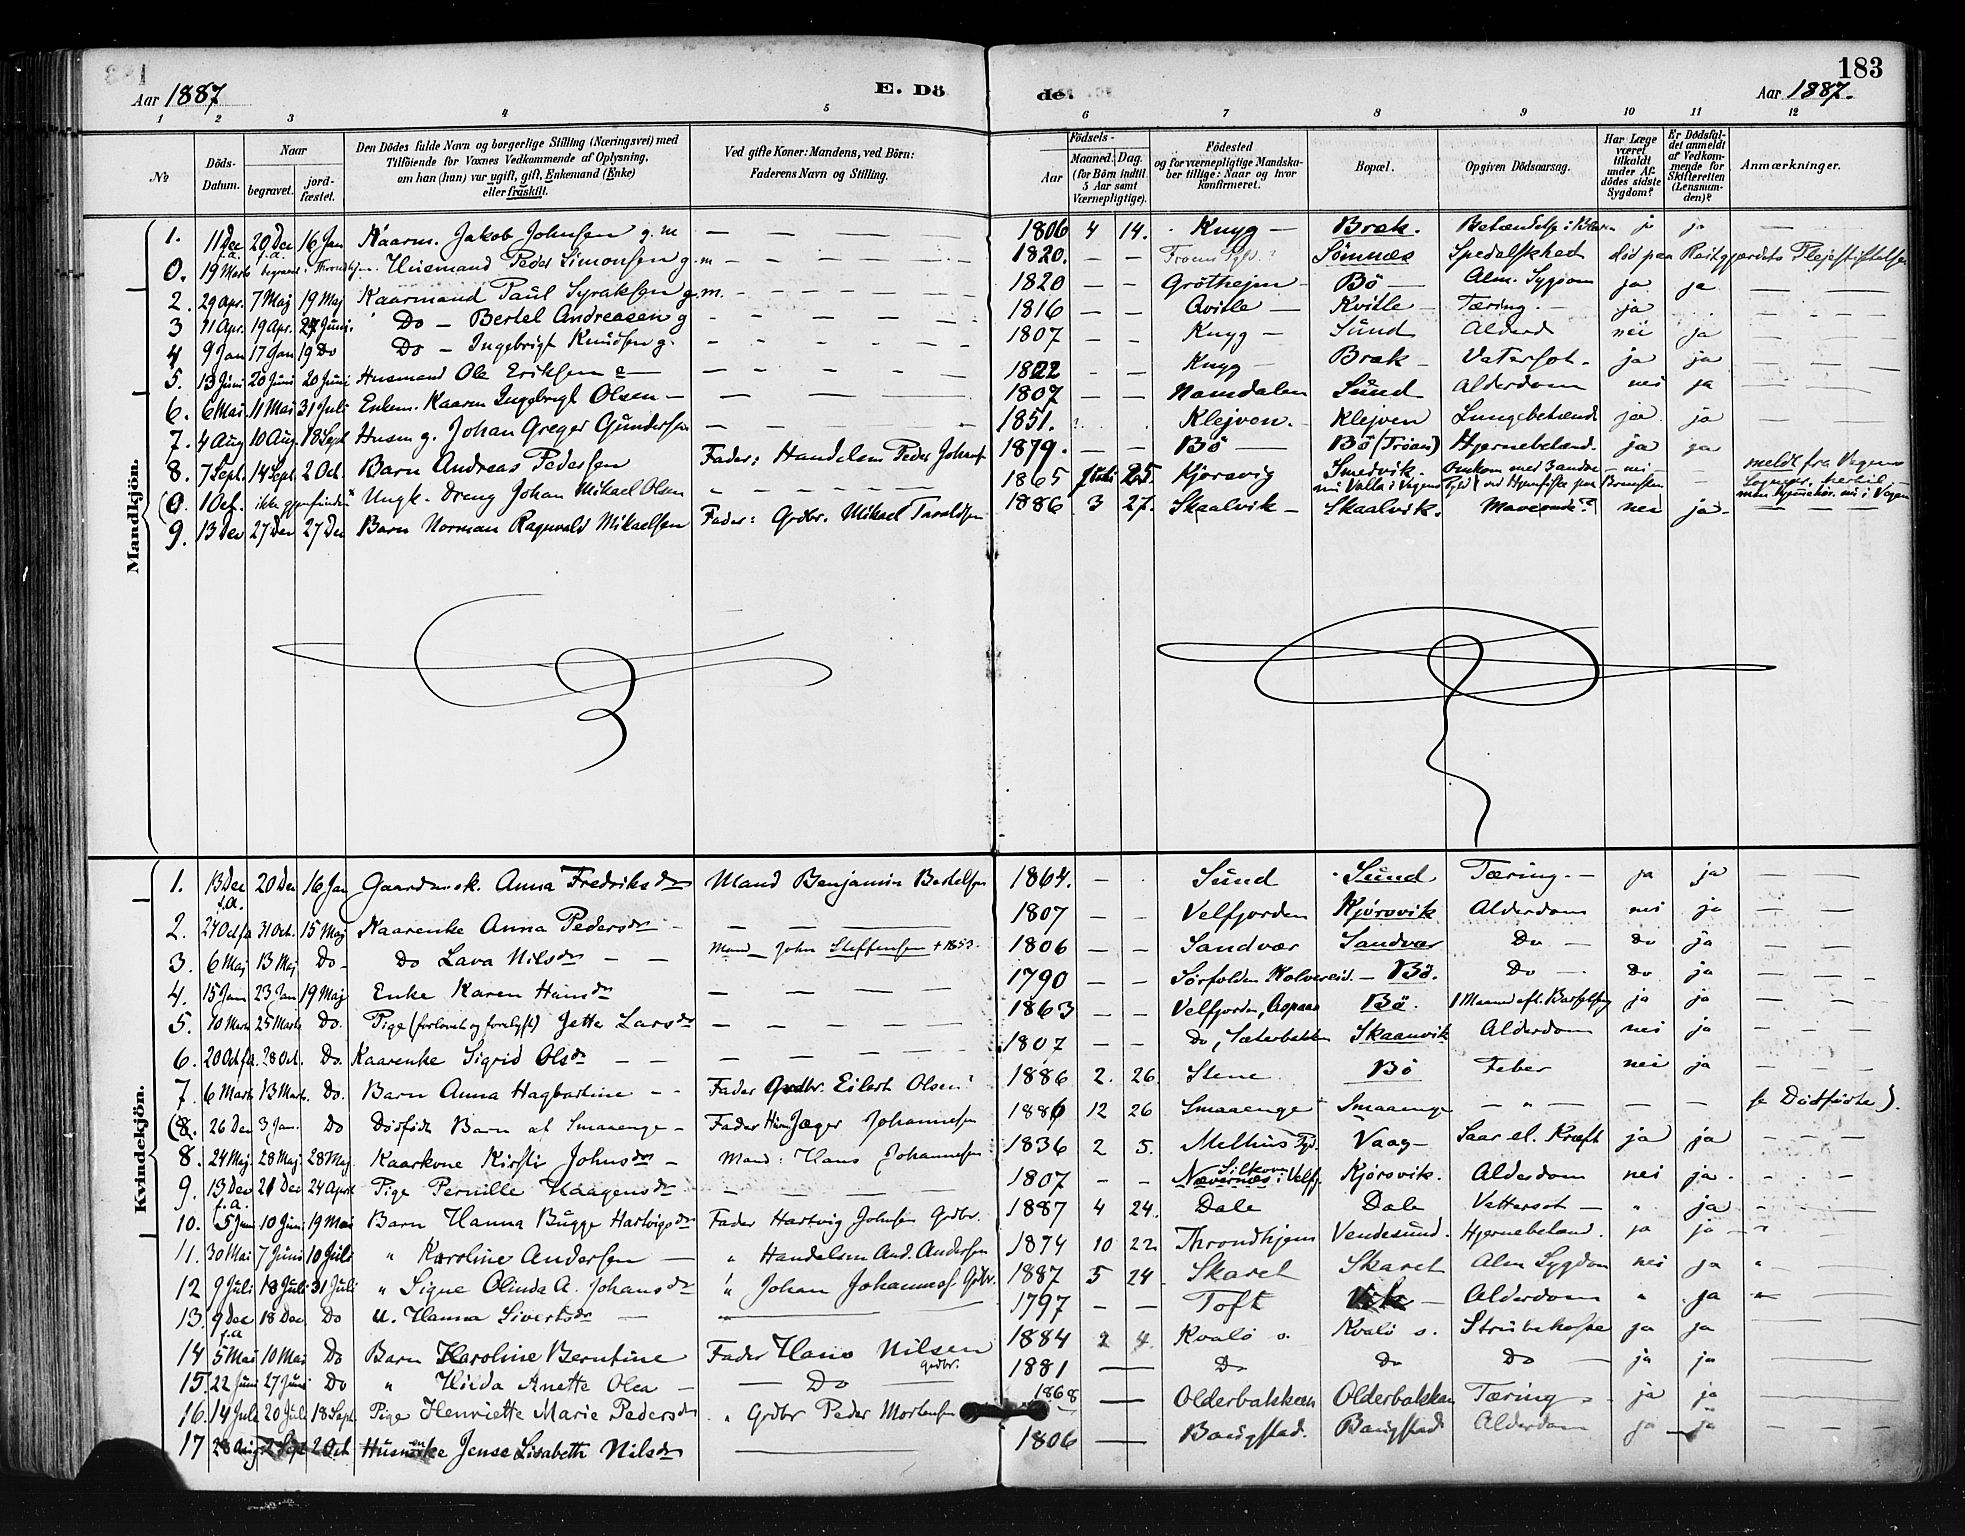 183
Aar 1887 E. Dö de. Aar 1887.
1 2 3 4 5 6 7 8 9 10 11 12
No Döds-Datum. Naar begravet. jord-fæstet. Den Dödes fulde Navn og borgerlige Stilling (Næringsvei) med Tilföiende for Voxnes Vedkommende af Oplysning, om han (hun) var ugift, gift, Enkemand (Enke) eller fraskilt. Ved gifte Koner: Mandens, ved Börn: Faderens Navn og Stilling. Födsels- Aar Maaned. Dag. (for Börn indtil 5 Aar samt Værnepligtige). Födested og for værnepligtige Mandskaber tillige: Naar og hvor konfirmeret. Bopæl. Opgiven Dödsaarsag. Har Læge været tilkaldt under Afdödes sidste Sygdom? Er Dödsfaldet anmeldt af Vedkommende for Skifteretten (Lensmanden)? Anmærkninger.
Mandkjön.
1. 11 Dec f.a. 20 Dec f.a. 16 Jan Kaarm. Jakob Johnsen g.m — 1806 4 14. Knyg — Bræk. Betændelse i ja ja —
0. 19 Marts begravet i Throndhjem. Huusmand Peder Simonsen g.m — 1820. — — Sömnæs Spedalskhed död paa Reitgjærdets Plejestiftelse
2. 29 Apr. 7 Maj 19 Maj Kaarmand Paul Syraksen g.m. — 1820 — — Gröthejen — Bö — Alm. Sygdom ja ja — —
3 11 Apr. 19 Apr. 24 Juni. Do — Bertel Andreasen g — 1816 — — Qvitle — Kvitle — Tæring. — ja — —
4 9 Jan 17 Jan 19 Do Do — Ingebrigt Knudsen g. — 1807 — — Knyg — Sund Alderd nei ja — —
5. 13 Juni 20 Juni 20 Juni Husmand Ole Eriksen e — — 1822 — — Knyg — Bræk — Vatersot. — ja ja — —
6. 6 Mai 11 Mai 31 Juli Enkem. Kaarm Ingebrigt Olsen — — 1807 — — Namdalen Sund Alderdom nei ja — —
7. 4 Aug 10 Aug. 18 Sept. Husm g. Johan Greger Gundersen — 1851. Klejven. — Klejven Lungebetænd ja ja — —
8. 7 Sept. 14 Sept. 2 Oct. Barn Andreas Pedersen Fader: Handelsm Peder Johns 1879. — — Bö — Bö (Tröan) Hjernebetænd. ja ja
(0. 1 Oct. ikke gjenfunden Ungk. Dreng Johan Mikael Olsen — 1865 Juli 25. Kjörsvig Smedvik. nu Valla i Vegens Omkom med 3 andre — nei — meldt fra Vegens
9. 13 Dec 27 Dec 27 Dec Barn Norman Ragnvald Mikaelsen Fader: Grdbr. Mikael Taraldsen 1886 3 27. Skaalvik — Skaalvik. Maveonde? nei ja — —
Kvindekjön.
1. 13 Dec f.a. 20 Dec 16 Jan Gaardmsk. Anna Fredriksdr Mand Benjamin Bertelsen 1864. — Sund Sund Tæring. — ja ja
2. 24 Oct fa 31 Oct. 15 Maj Kaarenke Anna Pedersdr — 1807 — — Velfjorden Kjörsvik Alderdom nei ja — —
3. 6 Maj 13 Maj Do — Do Lava Nilsdr — — Mand — John Steffensen + 1853. 1806 — — Sandvær Sandvær Do — Do ja — —
4. 15 Juni 23 Jan 19 Maj Enke Karen Hansdr — 1790 — — Sörfolden Kolvereid. — Bö. Do — Do ja — —
5. 10 Marts 25 Marts Do. Pige (forlovet og forelyst) Jette Larsdr — 1863 — — Velfjorden, Aspaas Bö. 1 Maaned eft. Barselseng ja ja — —
6. 20 Oct fa. 28 Oct. Do. Kaarenke Sigrid Olsdr — — 1807 — — Do, Sæterbakken Skaanvik Alderdom nei ja — —
7. 6 Marts 13 Mart. Do. Barn Anna Hagbartine — — Fader Grdbr. Eilert Olsen 1886 2. 26. Stene Bö Feber nei ja — —
(8. 26 Dec 3 Jan. Do Dödfödt Barn af Smaaenge — Fader Husm Jæger Johannesen 1886 12 26 Smaaenge Smaaenge — " — — — se Dödfödte).
8. 24 Maj 28 Maj 28 Maj Kaarkone Kirsti Johnsdr — Mand: Hans Johannesen 1836 2 5. Melhus Vaag — Saar el. Kræft ja ja — —
9. 13 Dec f.a. 21 Dec 24 April Pige Pernille Haagensdr — 1807 — — Nævernes i Velfj. Kjörsvik. Alderdom nei ja. — —
10. 5 Juni 10 Juni 19 Mai Barn Hanna Bugge Hartvigsdr Fader Hartvig Johnsen Grdbr. 1887 4 24. Dale Dale Vattersot — " ja
11. 30 Mai 7 Juni 10 Juli " Karoline Andersen — " Handelsm And. Andersen 1874 10 22 Throndhjem Vendesund. Hjernebetænd. ja ja — "
12 9 Juli 18 Juli 31 Juli " Signe Olinda A. Johansdr " Johan Johannes Grdbr. 1887 5 24 Skaret Skaret Alm Sygdom nei ja "
13. 9 Dec f.a 18 Dec Do U. Hanna Sivertsdr — 1797 — — Toft Vik — Alderdom " ja "
14 5 Mai 10 Mai Do Barn Karoline Berntine Fader Hans Nilsen Grdbr. 1884 2 4. Kvalö s. Kvalö s. Strubehoste ja ja —
15. 22 Juni 27 Juni Do " Hilda Anette Olea — — Do — 1881 — Do Do Do — ja ja — —
16. 14 Juli 20 Juli 18 Sept. Pige Henriette Marie Pedersdr " Grdbr Peder Mortensen 1868 — Olderbakken Olderbakken Tæring ja ja — —
17 28 Aug 2 Sept 2 Oct Husmenke Jense Lisabeth Nilsdr — 1806 — Baugstad. Baugstad Alderdom ja ja — —